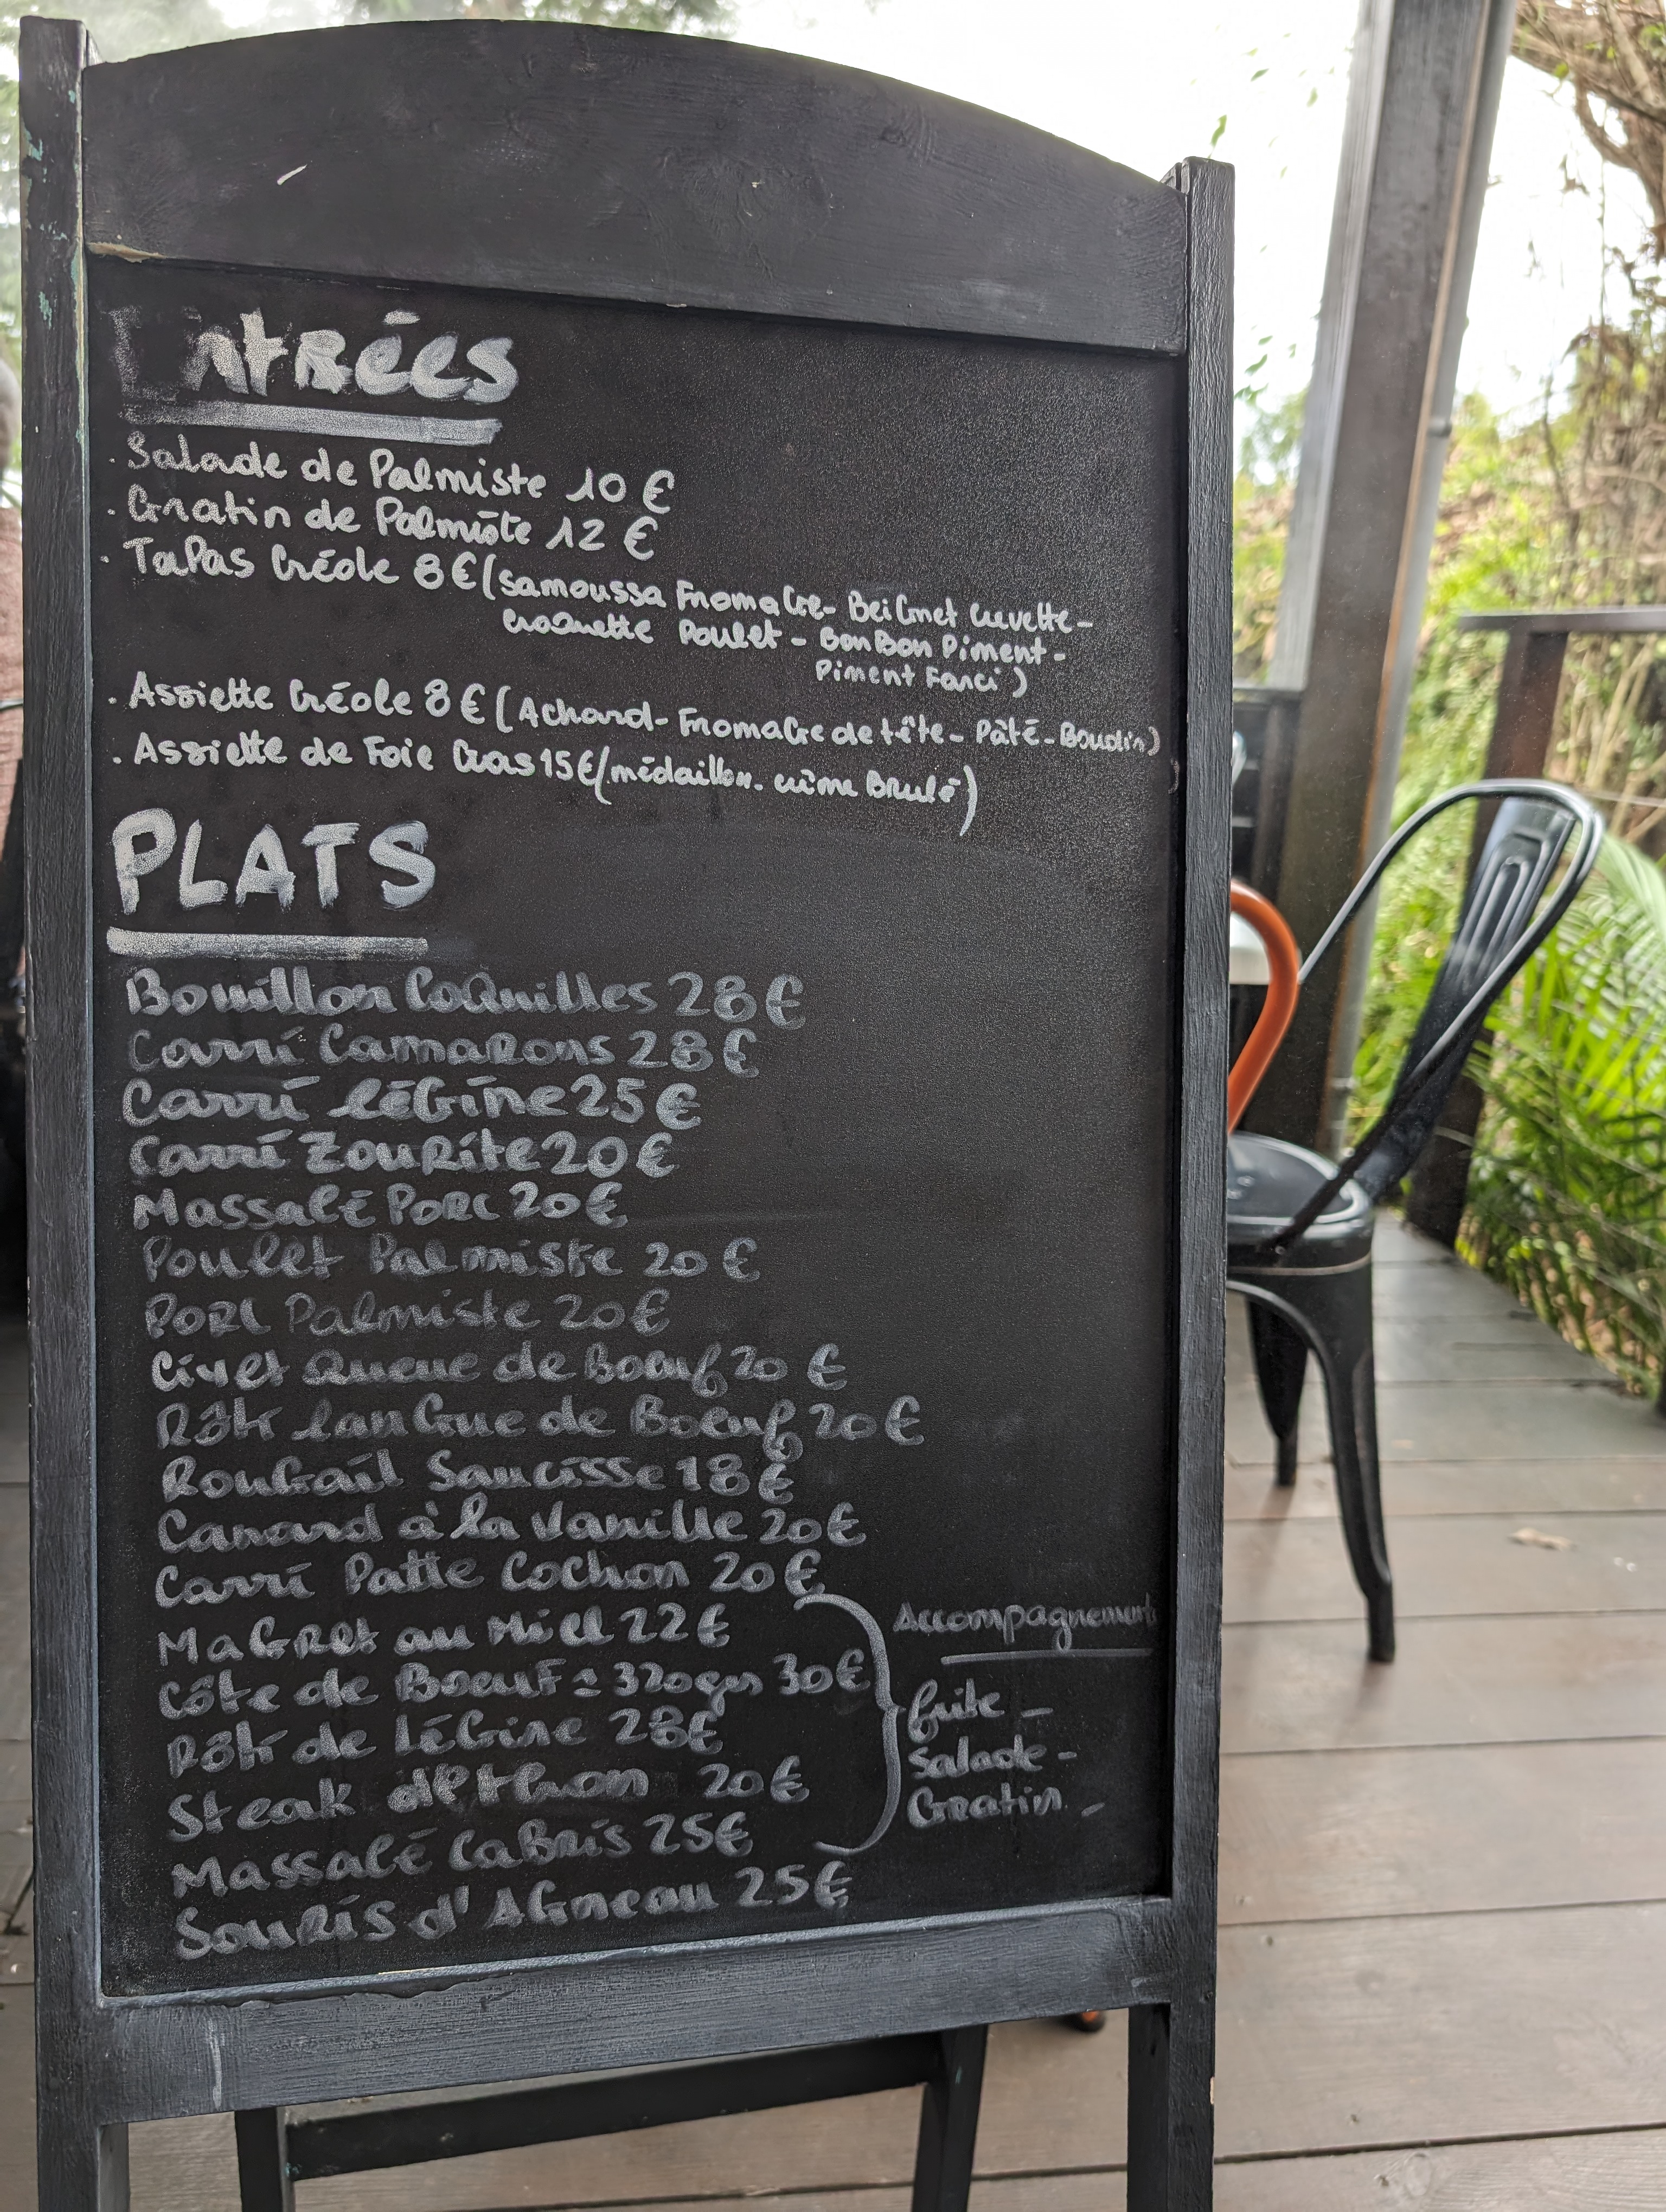 Entrées
. Salade de Palmiste 10 €
. Gratin de Palmiste 12 €
. Tapas Créole 8 € (Samoussa Fromage - Beignet Crevette -
Croquette Poulet - BonBon Piment -
Piment Farci)
. Assiette Créole 8 € (Achard - Fromage de tête - Pâté - Boudin)
. Assiette de Foie Gras 15 € (médaillon - crème Brulé)
PLATS
Bouillon Coquilles 28 €
Carri Camarons 28 €
Carri légine 25 €
Carri Zourite 20 €
Massalé Porc 20 €
Poulet Palmiste 20 €
Porc Palmiste 20 €
Civet Queue de Boeuf 20 €
Rôti langue de Boeuf 20 €
Rougail Saucisse 18 €
Canard à la Vanille 20 €
Carri Patte Cochon 20 €
Magret au Miel 22 €
Côte de Boeuf ± 320grs 30 €
Rôti de légine 28 €
Steak de thon 20 €
Massalé Cabris 25 €
Souris d'Agneau 25 €
Accompagnement
frite -
Salade -
Gratin -